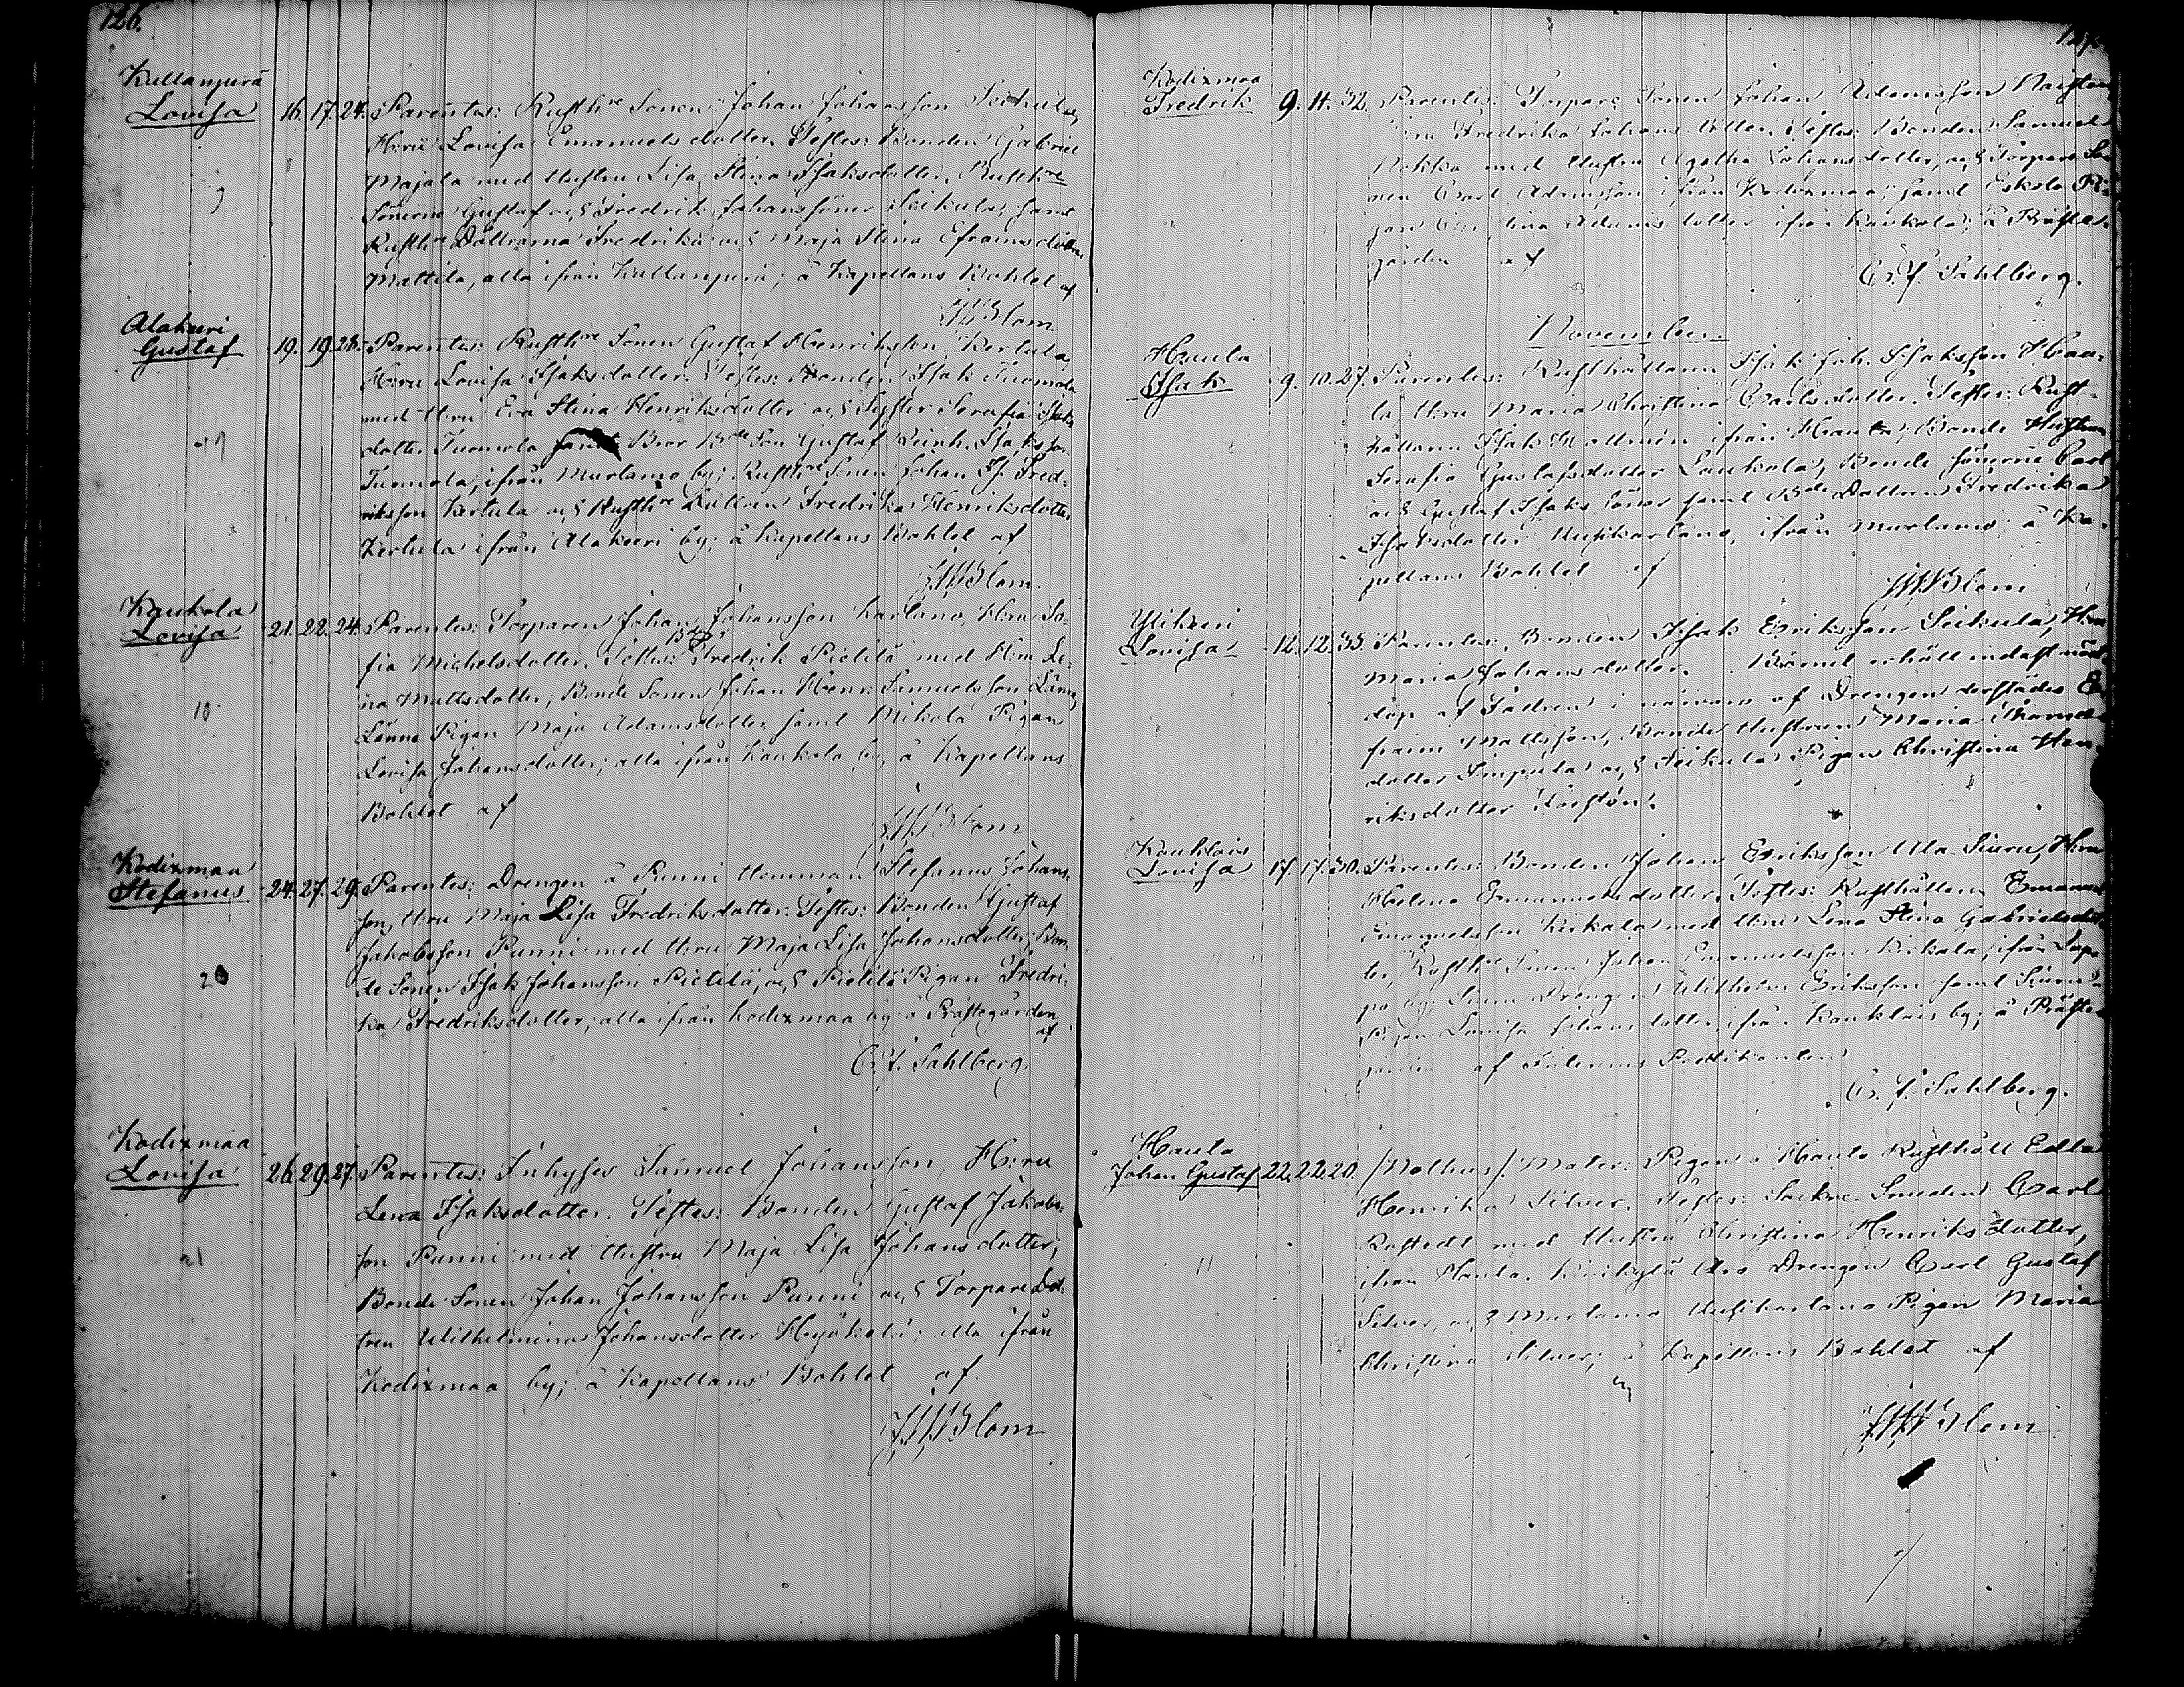 126.
Kallanperä
Lovisa 16. 17. 24. Parentes: Rusthre Sonen Johan Johansson Seikula,
Hru Lovisa Emanuelsdotter. Testes: Bonden Gabriel
Majala med Hustru Lisa Stina Isaksdotter, Rusthre
Sönerne Gustaf och Fredrik Johanssöner Seikula, samt
Rusthre Döttrarna Fredrika och Maja Stina Eframsdöttrar
Mattila, alla ifrån Kallanperä; å Kapellans Bohlet af
Blom
Alakeeri
Gustaf 19. 19. 28. Parentes: Rusthre Sonen Gustaf Henriksson Kertula,
Hru Lovisa Isaksdotter. Testes: Bonden Isak Tuomola
med Hru Eva Stina Henriksdotter och Syster Serafia Isaks
dotter Tuomola samt Bror Bde Son Gustaf Isaksson
Tuomola, ifrån Murlamo by; Rusthre Sonen Johan Fred-
riksson Kertula och Rusthre Dottren Fredrika Henriksdotter
Kertula ifrån Alakeeri by; å Kapellans Bohlet af
Blom
Kaukola
Lovisa 21. 22. 24. Parentes: Torparen Johan Johansson Karlano, Hru So-
fia Michelsdotter. Testes: Fredrik Pietilä med Hru Le-
na Mattsdotter, Bonde Sonen Johan Henr. Samuelsson Länne,
Länne Pigan Maja Adamsdotter samt Mikola Pigan
Lovisa Johansdotter; alla ifrån Kaukola by; å Kapellans
10
Bohlet af
Blom
Kodixmaa
Stefanus 24. 27. 29. Parentes: Drengen å Punni Hemman Stefanus Johans-
son, Hru Maja Lisa Fredriksdotter. Testes: Bonden Gustaf
Jakobsson Punni med Hru Maja Lisa Johansdotter; Bon-
de Sonen Isak Johansson Pietilä, och Pietilä Pigan Fredri-
20
ka Fredriksdotter; alla ifrån Kodixmaa by; å Prästegården
af
C. J. Sahlberg.
Kodixmaa
Lovisa 26. 29. 27. Parentes: Inhyses Samuel Johansson Hru
Lena Isaksdotter. Testes: Bonden Gustaf Jakobs-
son Punni med Hustru Maja Lisa Johansdotter,
21
Bonde Sonen Johan Johansson Punni och Torpare Dot-
tren Wilhelmina Johansdotter Hyökälä; alla ifrån
Kodixmaa by; å Kapellans Bohlet af
Blom
Kodixmaa
Fredrik 9. 11. 32. Parentes: Torpare Sonen Johan Adamsson
Hru Fredrika Johansdotter. Testes: Bonden Samuel
med Hustru Agatha Johansdotter, och Torpare So-
nen Carl Adamsson ifrån Kodixmaa; samt Pi-
gan Adamsdotter ifrån Kaukola; å Präste-
gården af
C. J. Sahlberg.
November.
Haula
Isak 9. 10. 27. Parentes: Rusthållaren Isak Joh. Isaksson Hau-
la Hru Maria Christina Carlsdotter. Testes: Rust-
hållaren Isak ifrån Haula; Bonde Hustrun
Serafia Gustafsdotter Laukola, Bonde sönerne Carl
och Gustaf Isaks söner samt Bde Dottren Fredrika
Isaksdotter Uusikarlano, ifrån Murlamo; å Ka-
pellans Bohlet af
Blom
Ylikeeri
Lovisa 12. 12. 35. Parentes: Bonden Isak Eriksson Seikula, Hru
Maria Johansdotter. Barnet erhöll endast nöd-
dop af Fadren i närvaro af Drengen derstädes E-
fraim Mattsson, Bonde Hustrun Maria
dotter Simpula och Seikula Pigan Christina Hen-
riksdotter
Kauklais
Lovisa 17. 17. 30. Parentes: Bonden Johan Eriksson Ala Siuru, Hru
Helena Emanuelsdotter. Testes: Rusthållaren Emanuel
Emanuelsson Kirkala med Hru Lena Stina Gabrielsdot-
ter, Rusthre Sonen Johan Emanuelsson Kirkala, ifrån
by; Siuru Drengen Wilhelm Eriksson samt Siuru
Pigan Lovisa Johansdotter ifrån Kauklais by; å Präste-
gården af
C. J. Sahlberg.
Haula
Johan Gustaf 22. 22. 20. /Nothus/. Mater: Pigan å Haula Rusthåll Edla
Henrika Silver. Testes: Sockne Smeden Carl
Rostedt med Hustru Christina Henriksdotter,
ifrån Haula. Kirikylä Drengen Carl Gustaf
Silver, och Murlamo Uusikarlano Pigan Maria
Christina Silver; å Kapellans Bohlet af
Blom